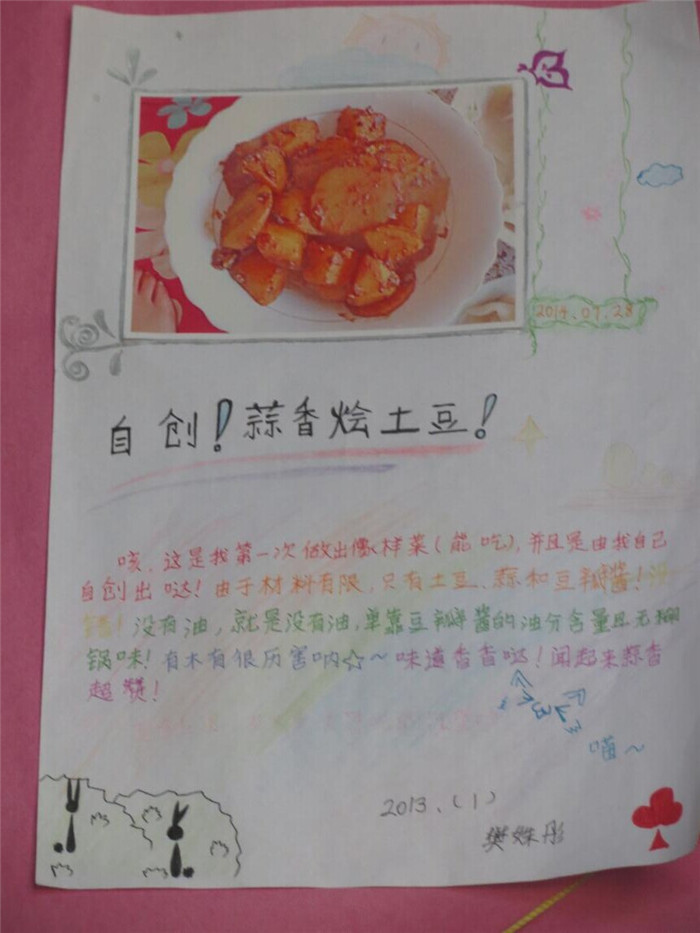 2014.07.28
自创!蒜香烩土豆!
咳,这是我第一次做出像样菜(能吃),并且是由我自己
自创出哒!由于材料有限,只有土豆、蒜和豆瓣酱!没
错!没有油,就是没有油,单靠豆瓣酱的油分含量且无糊
锅味!有木有很历害呐☆~味道香香哒!闻起来蒜香
超赞!
喵~
2013.(1)
樊姝彤